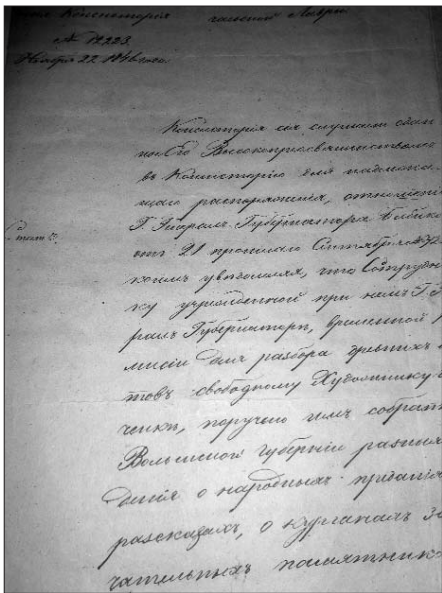 Консисторія Лавры
№ 12,223.
Ноября 22. 1846 года
Консисторія сія слушали сдан
ное Его Высокопреосвященством
въ Консисторію для надлежа
щаго распоряженія, отношеніе
Г. Генералъ-Губернатора Бибико
отъ 21 прошлаго Сентября №
коимъ увѣдомляя, что Сотрудн
ку учрежденной при немъ Г. Г
ралъ Губернаторѣ, временной
мисіи для разбора древнихъ
товъ свободному Художнику
ченкѣ, поручено имъ собрать
Волынской губерніи разныя
денія о народныхъ преданія
разсказахъ, о курганахъ за
чательныхъ памятник